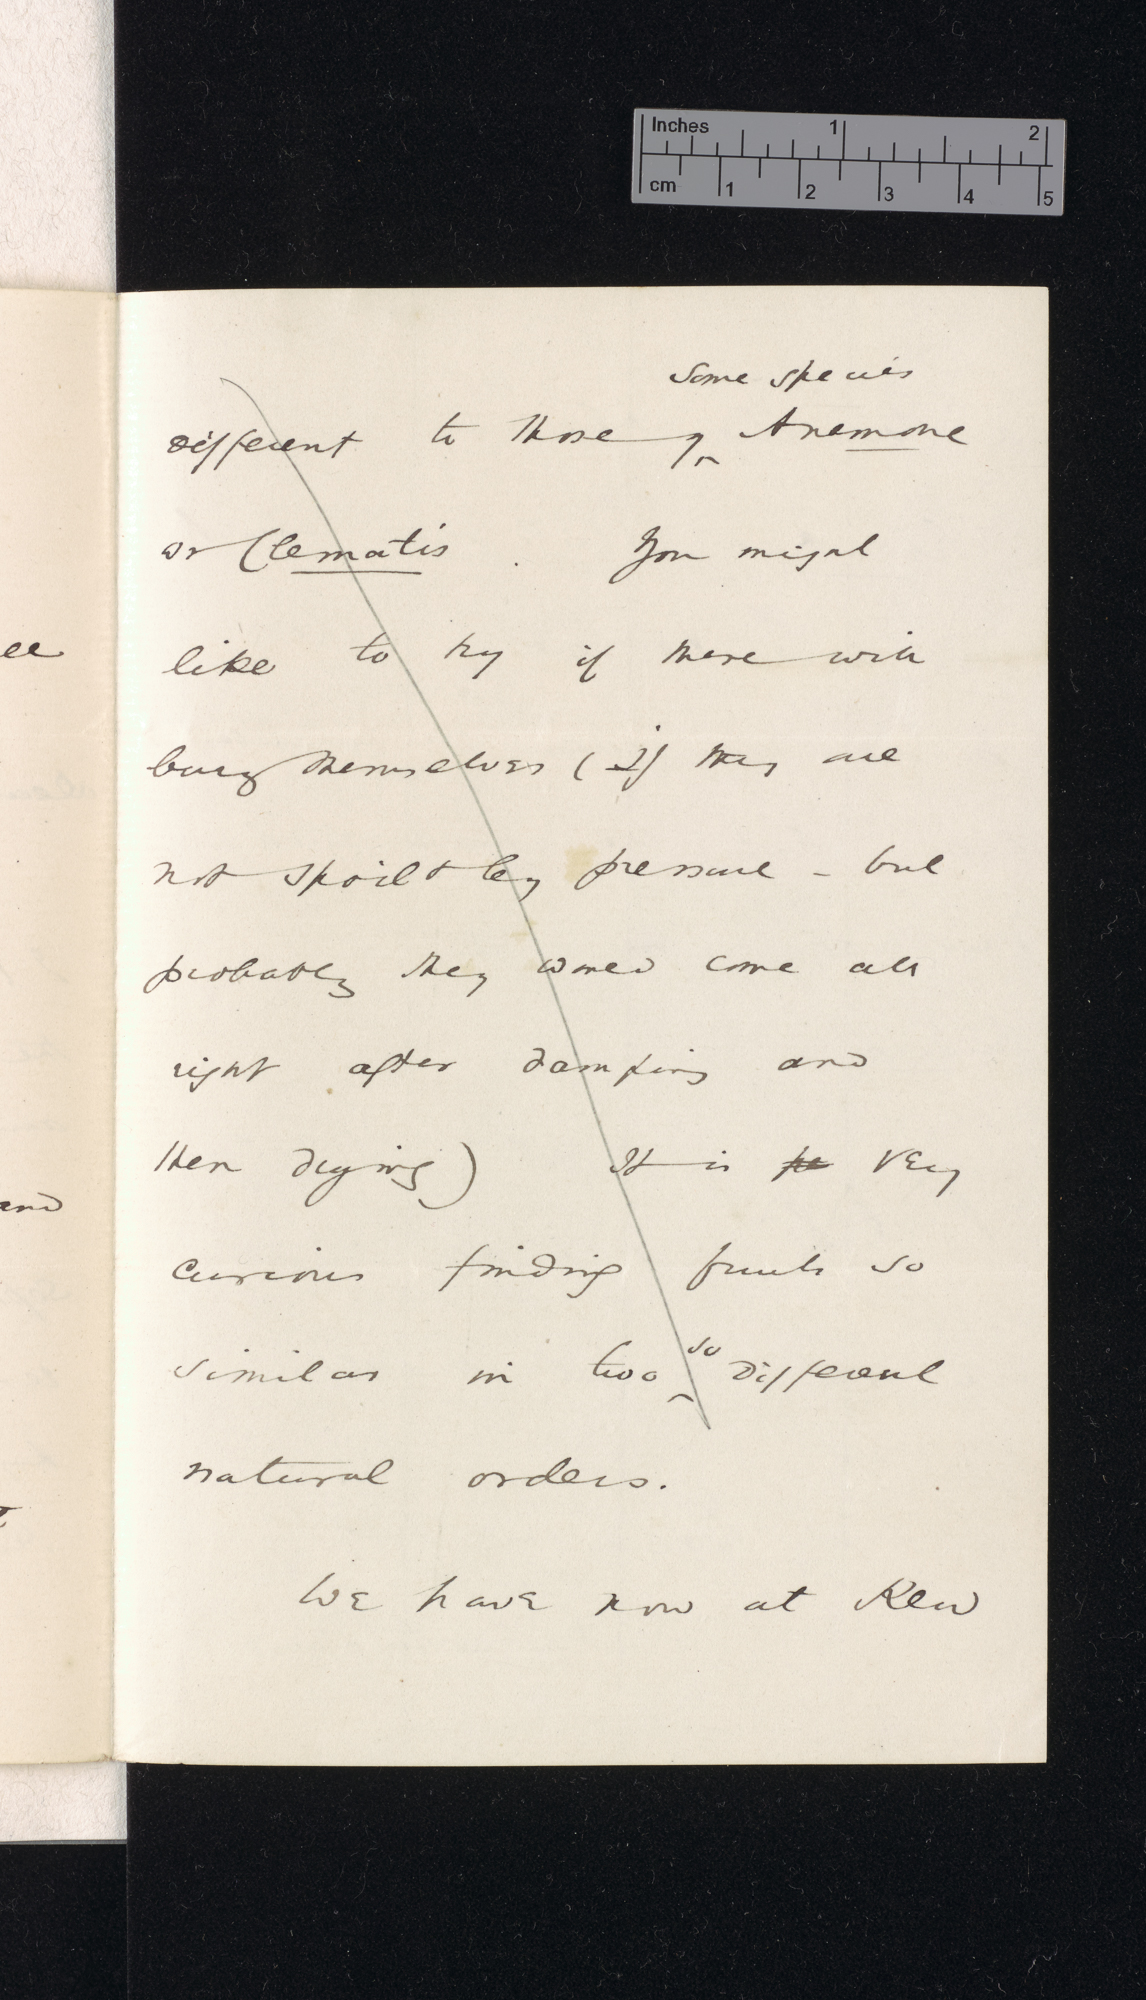 Inches 1 2
cm 1 2 3 4 5
some species
different to those of Anemone
or Clematis. You might
like to try if these will
bury themselves (if they are
not spoilt by pressure - but
probably they would come all
right after damping and
then drying) It is very
curious finding fruits so
so
similar in two different
natural orders.
We have now at Kew
ee
and